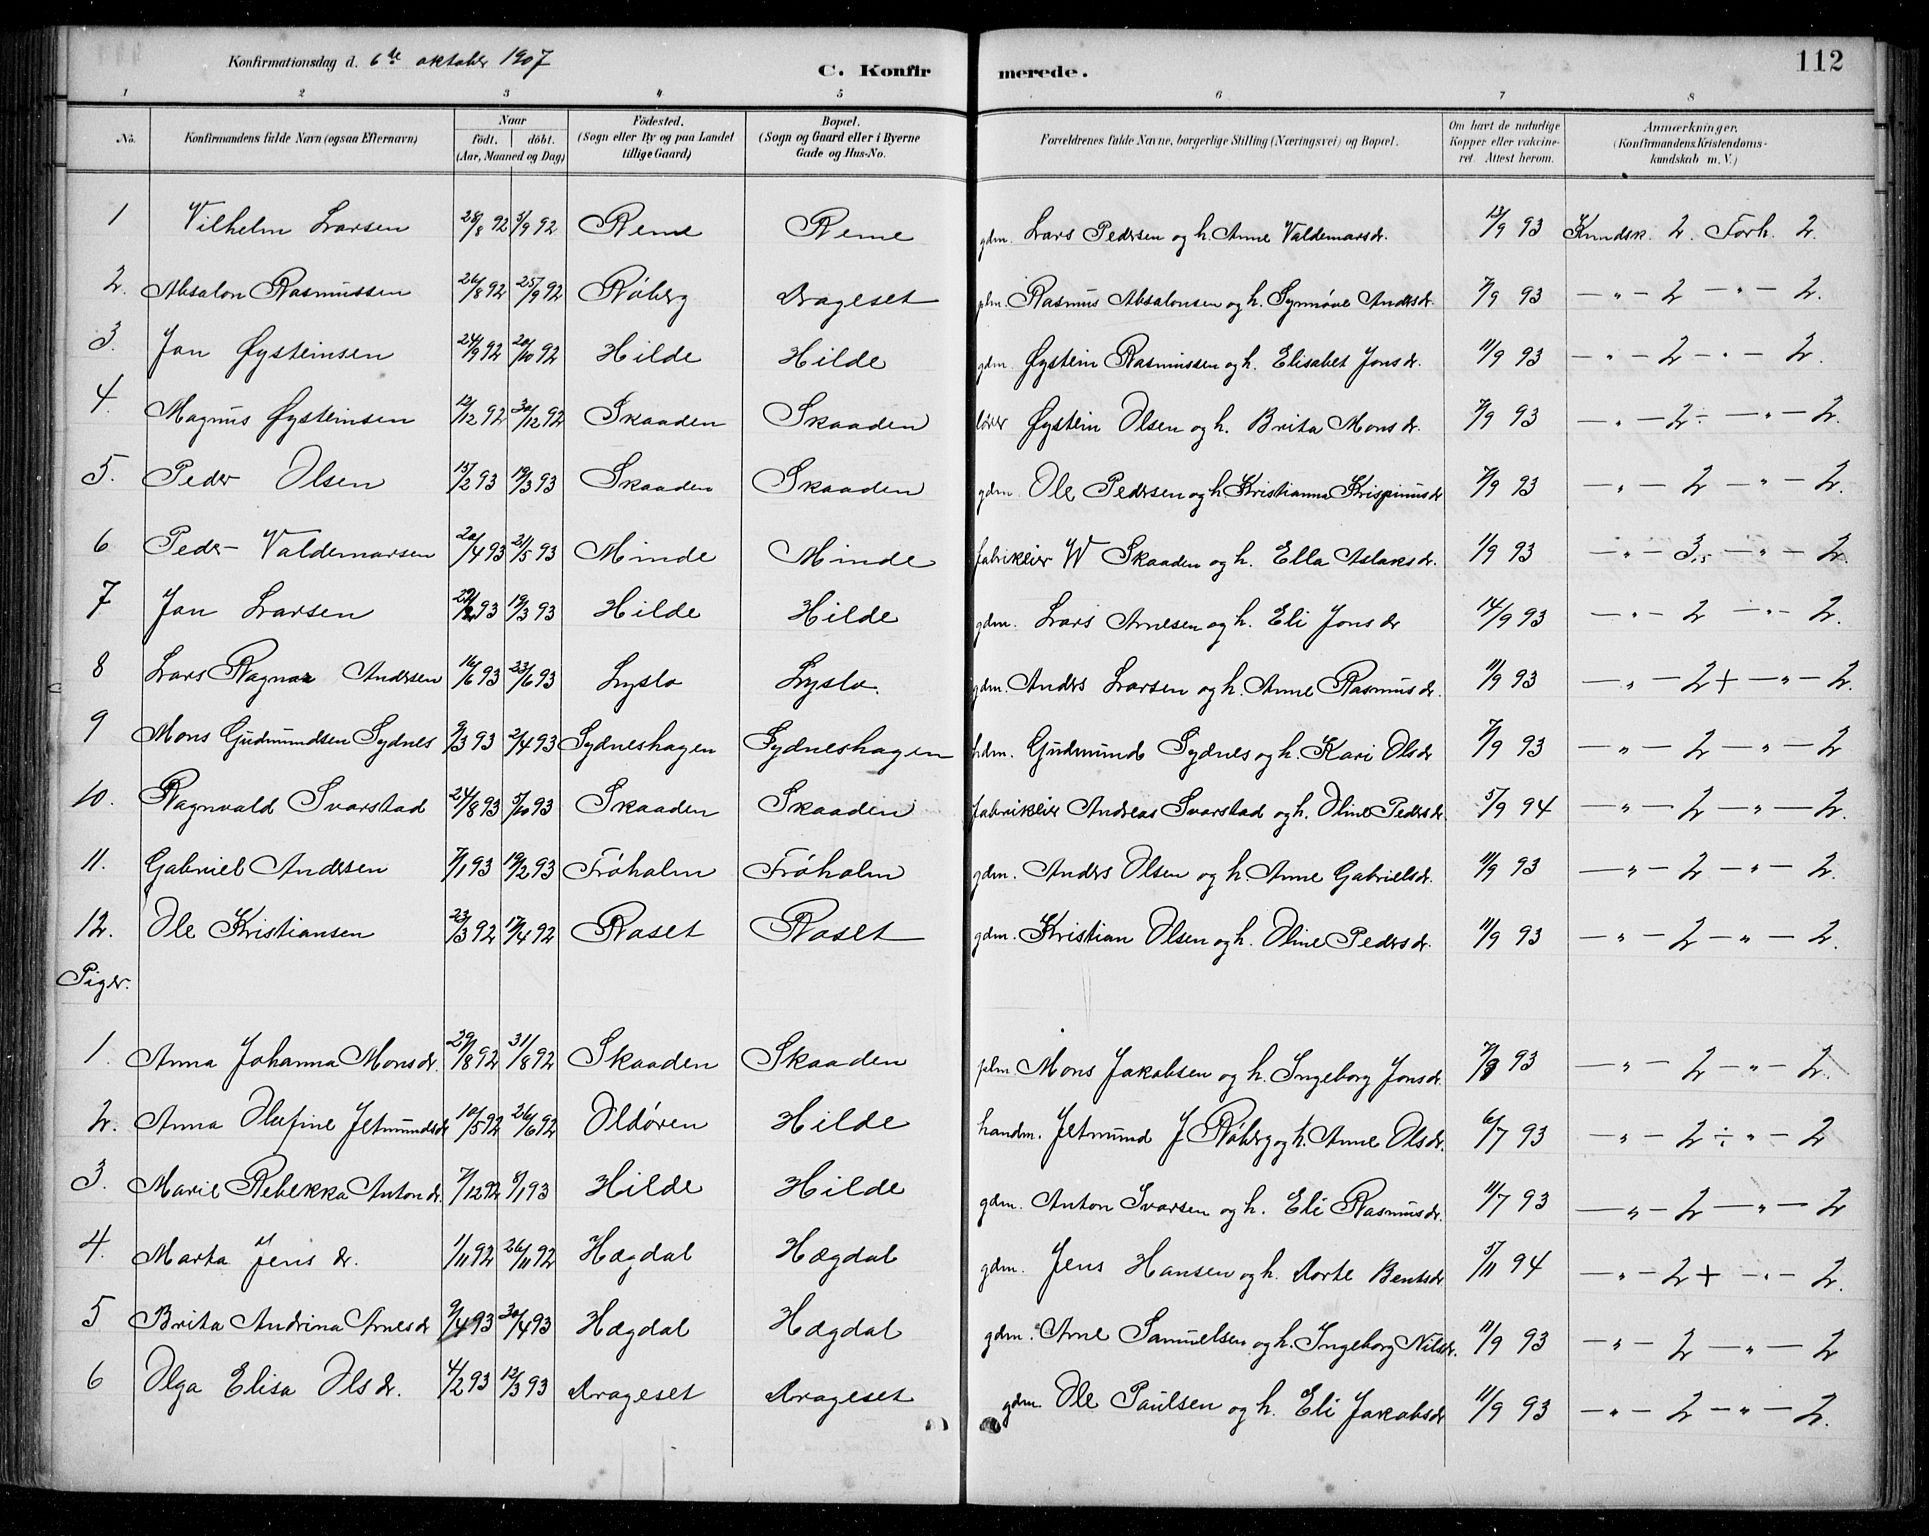 Konfirmationsdag d. 6te oktober 1907
C. Konfirmerede.
112
1 2 3 4 5 6 7 8
No. Konfirmandens fulde Navn (ogsaa Efternavn) Naar födt. döbt. (Aar, Maaned og Dag) Födested. (Sogn eller By og paa Landet tillige Gaard) Bopæl. (Sogn og Gaard eller i Byerne Gade og Hus-No. Forældrenes fulde Navne, borgerlige Stilling (Næringsvei) og Bopæl. Om havt de naturlige Kopper eller vakcineret. Attest herom. Anmærkninger. (Konfirmandens Kristendomskundskab m. V.)
1 Vilhelm Larsen 28/8 92 3/9 92 Reme Reme gdm. Lars Pedersen og h. Anne Valdemarsdr. 13/9 93 Kundsk. 2. Forh. 2.
2. Absalon Rasmussen 26/8 92 25/9 92 Røberg Drageset plm. Rasmus Absalonsen og h. Synnøve Andersdr. 7/9 93 — " — 2 — " — 2.
3. Jon Øysteinsen 24/9 92 20/10 92 Hilde Hilde gdm. Øystein Rasmussen og h. Elisabet Jonsdr. 11/9 93 — " — 2 — " — 2.
4. Magnus Øysteinsen 12/12 92 30/12 92 Skaaden Skaaden Øystein Olsen og h. Brita Monsdr. 7/9 93 — " — 2 ÷ — " — 2.
5. Peder Olsen 15/2 93 19/3 93 Skaaden Skaaden gdm. Ole Pedersen og h Kristianna Krispinusdr 7/9 93 — " — 2 — " — 2.
6 Peder Valdemarsen 20/4 93 21/5 93 Minde Minde fabrikeier W Skaaden og h. Ella Aslaksdr. 1/9 93 — " — 3,5 — " — 2.
7 Jon Larsen 93 19/3 93 Hilde Hilde gdm. Lars Arnesen og h. Eli Jonsdr 14/9 93 — " — 2 — " — 2.
8 Lars Ragnar Andersen 16/6 93 23/6 93 Lyslo Lyslo. gdm. Anders Larsen og h. Anne Rasmusdr. 11/9 93 — " — 2 + — " — 2.
9 Mons Gudmundsen Sydnes 9/3 93 2/4 93 Sydneshagen Sydneshagen hdm. Gudmund Sydnes og h. Kari Olsdr 7/9 93 — " — 2 — " — 2
10. Ragnvald Svarstad 24/8 93 5/10 93 Skaaden Skaaden fabrikeier Andreas Svarstad og h. Oline Pedersdr. 5/9 94 — " — 2 — " — 2.
11. Gabriel Andersen 7/1 93 19/2 93 Frøholm Frøholm gdm. Anders Olsen og h. Anne Gabrielsdr. 11/9 93 — " — 2 — " — 2.
12. Ole Kristiansen 23/3 92 17/4 92 Raset Raset gdm. Kristian Olsen og h. Oline Pedersdr. 11/9 93 — " — 2 — " — 2.
Piger.
1. Anna Johanna Monsdr. 29/8 92 31/8 92 Skaaden Skaaden plm. Mons Jakobsen og h. Ingeborg Jonsdr. 93 — " — 2 — " — 2.
2. Anna Olufine Jetmundsdr 10/5 92 26/6 92 Oldøren Hilde handm. Jetmund J Røberg og h. Anne Olsdr. 6/7 93 — " — 2 ÷ " — 2
3. Marie Rebekka Antondr. 7/12 92 8/1 93 Hilde Hilde gdm. Anton Ivarsen og h. Eli Rasmusdr. 11/7 93 — " — 2 — " — 2
4. Marta Jensdr. 1/11 92 26/11 92 Hægdal Hægdal gdm. Jens Hansen og h. Dorte Bentsdr 5/11 94 — " — 2 + — " — 2.
5 Brita Andrina Arnesdr 9/4 93 30/4 93 Hægdal Hægdal gdm. Arne Samuelsen og h. Ingeborg Nilsdr. 11/9 93 — " — 2 — " — 2
6 Olga Elisa Olsdr. 4/2 93 12/3 93 Drageset Drageset gdm. Ole Paulsen og h. Eli Jakobsdr 11/9 93 — " — 2 — " — 2.